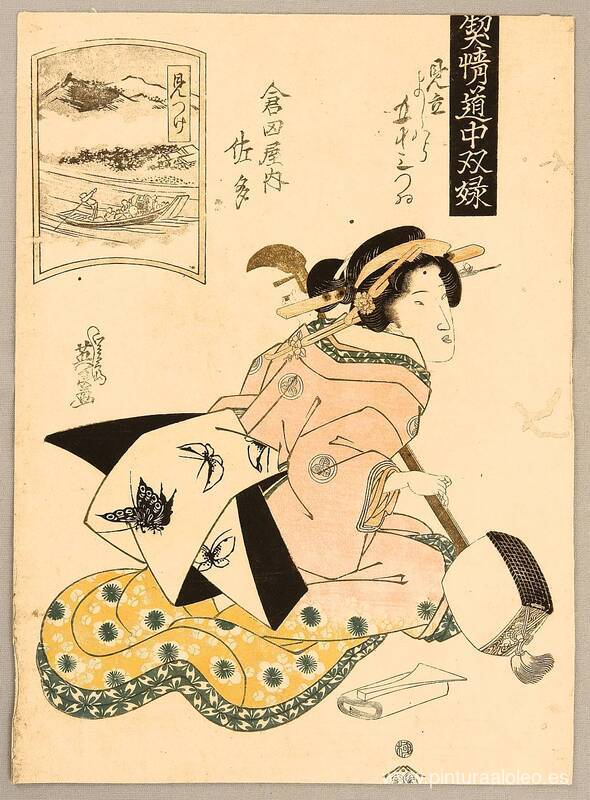 契情道中双娽
見立
よしはら
五十三つゐ
倉田屋内
佐多
見つけ
渓斎
英泉画
www.pinturaaloleo.es